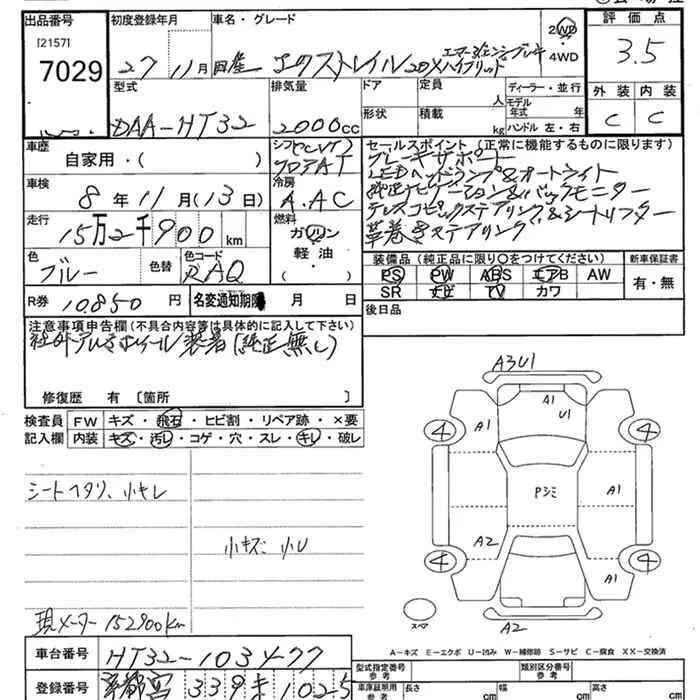 出品番号 初度登録年月 車名・グレード 評価点
[2157]
7029
27 11月 日産 エクストレイル 20X エマージェンシーブレーキ ハイブリッド 2WD・4WD 3.5
型式 排気量 ドア 定員 人 ディーラー・並行 外装 内装
DAA-HT32 2000cc 形状 積載 kg モデル年式 年 ハンドル 左・右 C C
車歴 自家用・( ) シフト セールスポイント(正常に機能するものに限ります)
フロア AT ブレーキサポート
車検 8年11月(13日) 冷房 A.AC LEDヘッドランプ&オートライト
純正ナビゲーション&バックモニター
走行 15万2千900km 燃料 ガソリン・軽油・( ) テレスコピックステアリング&シートリフター
革巻きステアリング
色 ブルー 色替 色コード RAQ 装備品(純正品に限り○をつけてください) 新車保証書
PS PW ABS エアB AW 有・無
SR ナビ TV カワ
R券 10850円 名変通知期限 月 日 後日品
注意事項申告欄(不具合内容等は具体的に記入して下さい)
社外アルミホイール装着(純正無し)
修復歴 有〔箇所 〕
検査員 FW キズ・飛石・ヒビ割・リペア跡・×要
記入欄 内装 キズ・汚レ・コゲ・穴・スレ・キレ・破レ
シートヘタリ、小キレ
小キズ 小U
現メーター152900km
A3U1
A1 U1
4 A1 4
Pシミ A1
A2
4 A1 4
スペア A2
A-キズ E-エクボ U-凹み W-補修跡 S-サビ C-腐食 XX-交換済
車台番号 HT32-103477
型式指定番号 参考 類別区分番号 参考
登録番号 339 1025
車庫証明用 参考 長さ cm 幅 cm 高さ cm